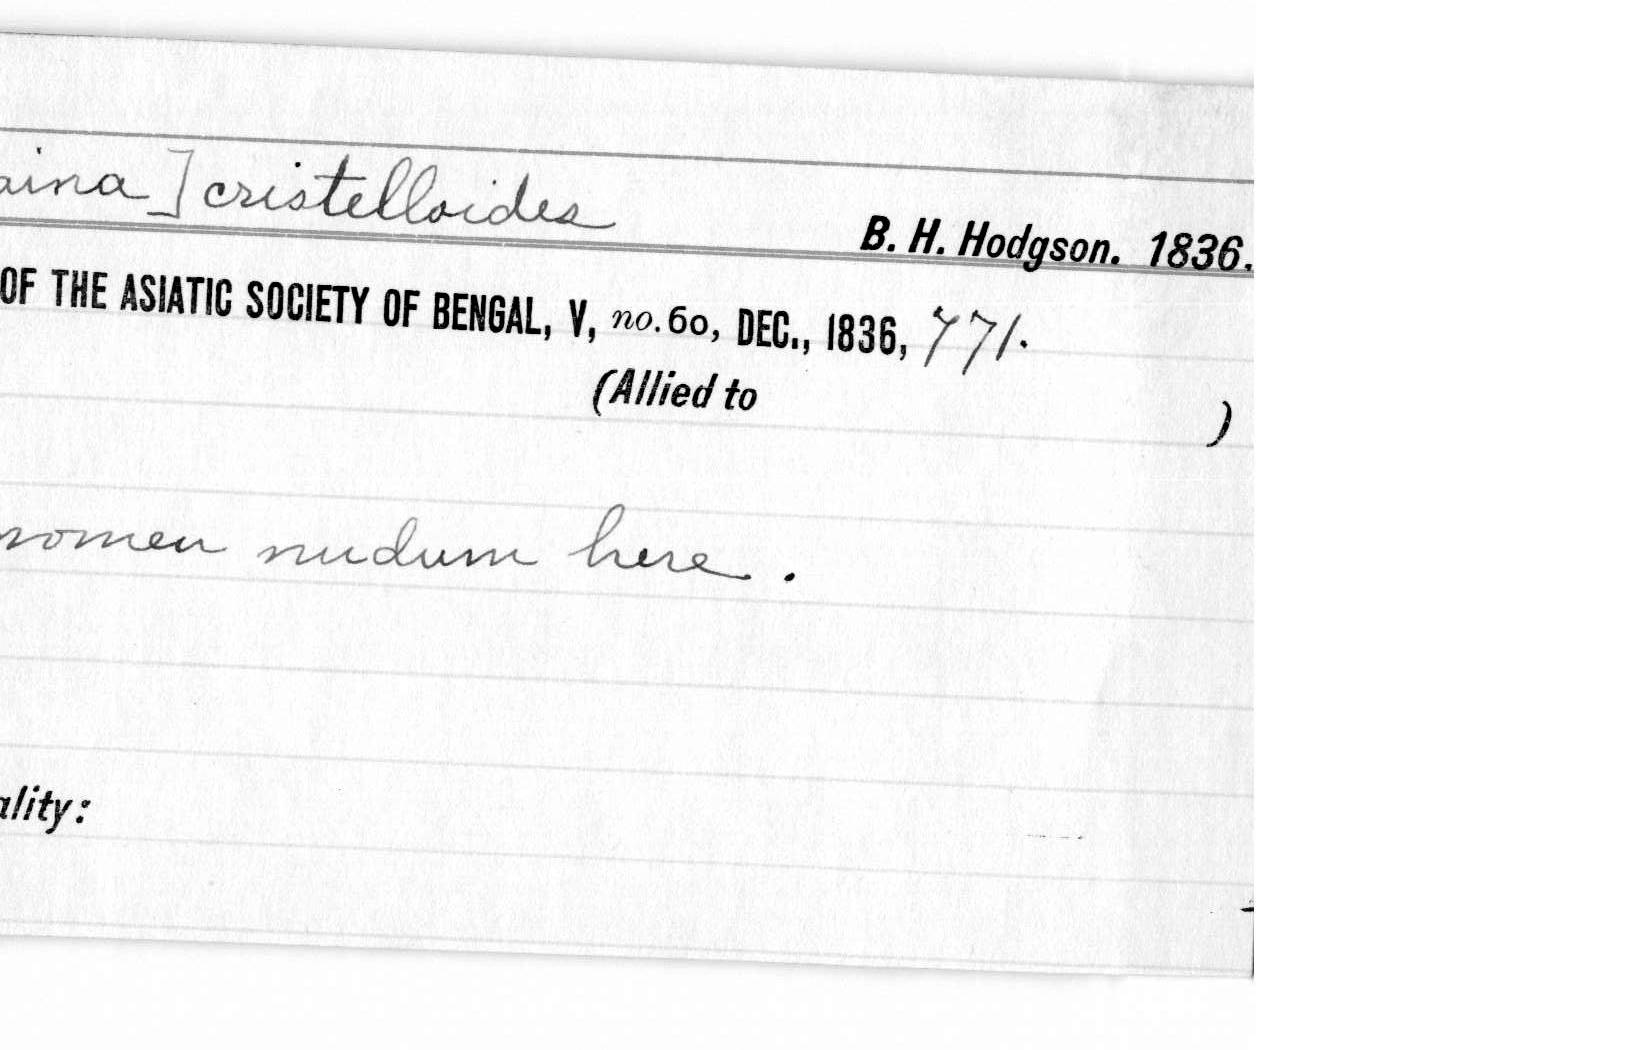 aina] cristelloides
B. H. Hodgson. 1836.
OF THE ASIATIC SOCIETY OF BENGAL, V, no. 60, DEC., 1836, 771.
(Allied to )
nomen nudum here.
ality: